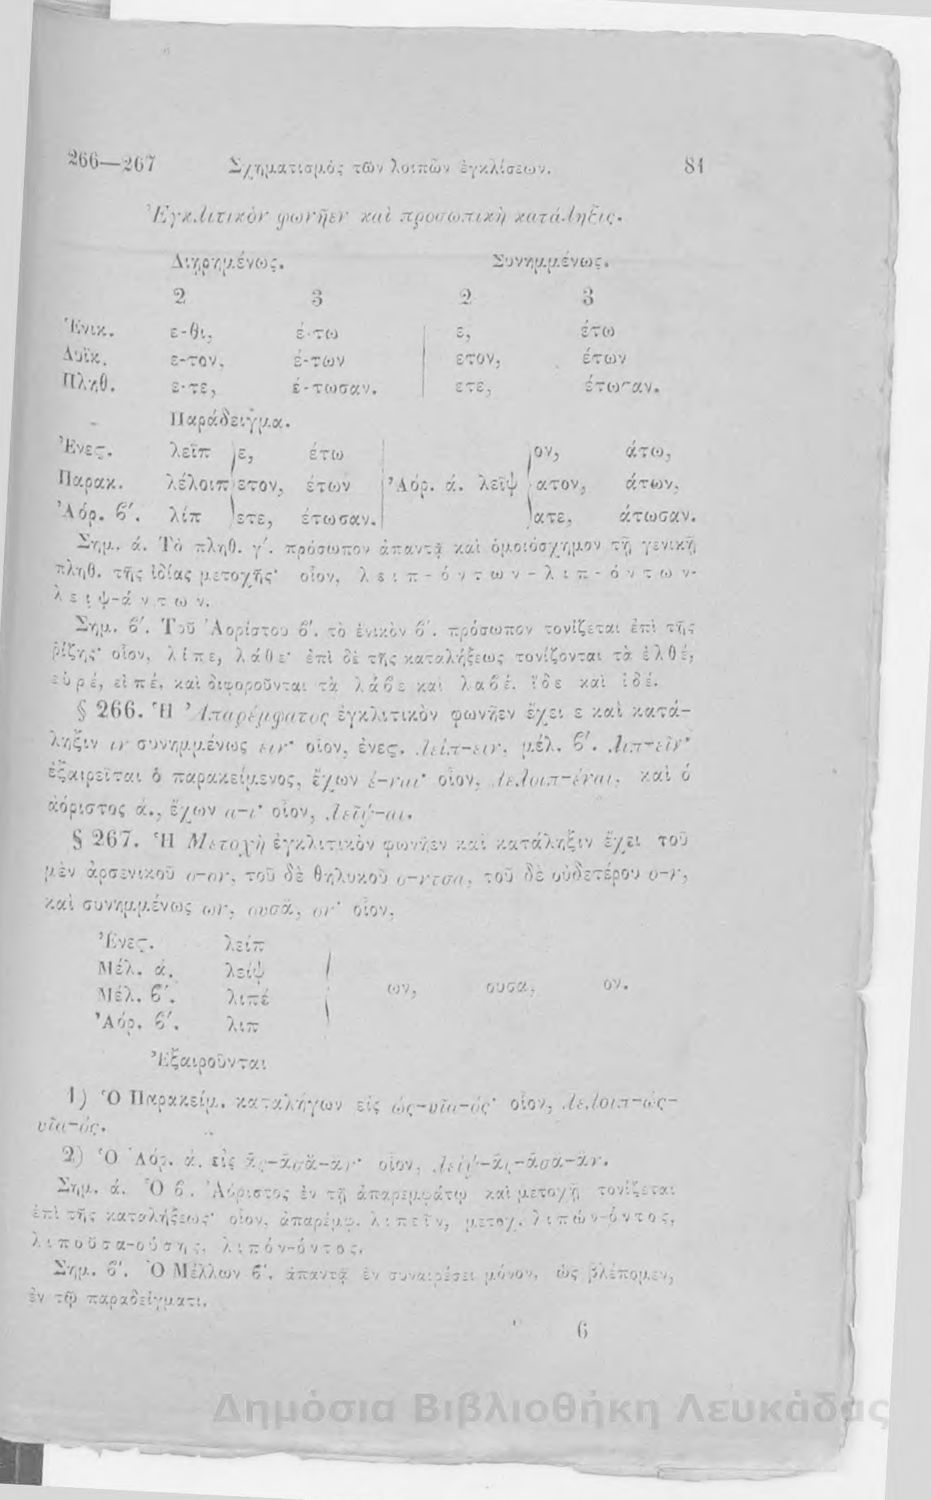 266—267 Σχηματισμὸς τῶν λοιπῶν ἐγκλίσεων. 81
Ἐγκλιτικὸν φωνῆεν καὶ προσωπικὴ κατάληξις.
Διῃρημένως. Συνημμένως.
2 3 2 3
Ἑνικ. ε-θι, έ-τω ε, έτω
Δυϊκ. ε-τον, έ-των ετον, έτων
Πληθ. ε-τε, έ-τωσαν. ετε, έτωσαν.
Παράδειγμα.
Ἐνεστ. λεῖπ ε, έτω ον, άτω,
Παρακ. λέλοιπ ετον, έτων Ἀόρ. ά. λεῖψ ατον, άτων,
Ἀόρ. β΄. λίπ ετε, έτωσαν. ατε, άτωσαν.
Σημ. ά. Τὸ πληθ. γ΄. πρόσωπον ἀπαντᾷ καὶ ὁμοιόσχημον τῇ γενικῇ
πληθ. τῆς ἰδίας μετοχῆς· οἷον, λειπ-όντων-λιπ-όντων-
λειψ-άντων.
Σημ. β΄. Τοῦ Ἀορίστου β΄. τὸ ἑνικὸν β΄. πρόσωπον τονίζεται ἐπὶ τῆς
ῥίζης· οἷον, λίπε, λάθε· ἐπὶ δὲ τῆς καταλήξεως τονίζονται τὰ ἐλθέ,
εὑρέ, εἰπέ, καὶ διφοροῦνται τὰ λάβε καὶ λαβέ, ἴδε καὶ ἰδέ.
§ 266. Ἡ Ἀπαρέμφατος ἐγκλιτικὸν φωνῆεν ἔχει ε καὶ κατά-
ληξιν ιν συνημμένως ειν· οἷον, ἐνεστ. λείπ-ειν, μέλ. β΄. λιπ-εῖν·
ἐξαιρεῖται ὁ παρακείμενος, ἔχων έ-ναι· οἷον, λελοιπ-έναι, καὶ ὁ
ἀόριστος ά., ἔχων α-ι· οἷον, λεῖψ-αι.
§ 267. Ἡ Μετοχὴ ἐγκλιτικὸν φωνῆεν καὶ κατάληξιν ἔχει τοῦ
μὲν ἀρσενικοῦ ο-ον, τοῦ δὲ θηλυκοῦ ο-ντσα, τοῦ δὲ οὐδετέρου ο-ν,
καὶ συνημμένως ων, ουσᾰ, ον· οἷον,
Ἐνεστ. λείπ
Μέλ. ά. λείψ
Μέλ. β΄. λιπέ ων, ουσα, ον.
Ἀόρ. β΄. λιπ
Ἐξαιροῦνται
1) Ὁ Παρακείμ. καταλήγων εἰς ώς-υῖα-ός· οἷον, λελοιπ-ώς-
υῖα-ός.
2) Ὁ Ἀόρ. ά. εἰς ᾱς-ᾱσᾰ-ᾰν· οἷον, λείψ-ᾱς-ᾱσα-ᾰν.
Σημ. ά. Ὁ β΄. Ἀόριστος ἐν τῇ ἀπαρεμφάτῳ καὶ μετοχῇ τονίζεται
ἐπὶ τῆς καταλήξεως· οἷον, ἀπαρέμφ. λιπεῖν, μετοχ. λιπών-όντος,
λιποῦσα-ούσης, λιπόν-όντος.
Σημ. β΄. Ὁ Μέλλων β΄. ἀπαντᾷ ἐν συναιρέσει μόνον, ὡς βλέπομεν,
ἐν τῷ παραδείγματι.
6
Δημόσια Βιβλιοθήκη Λευκάδας